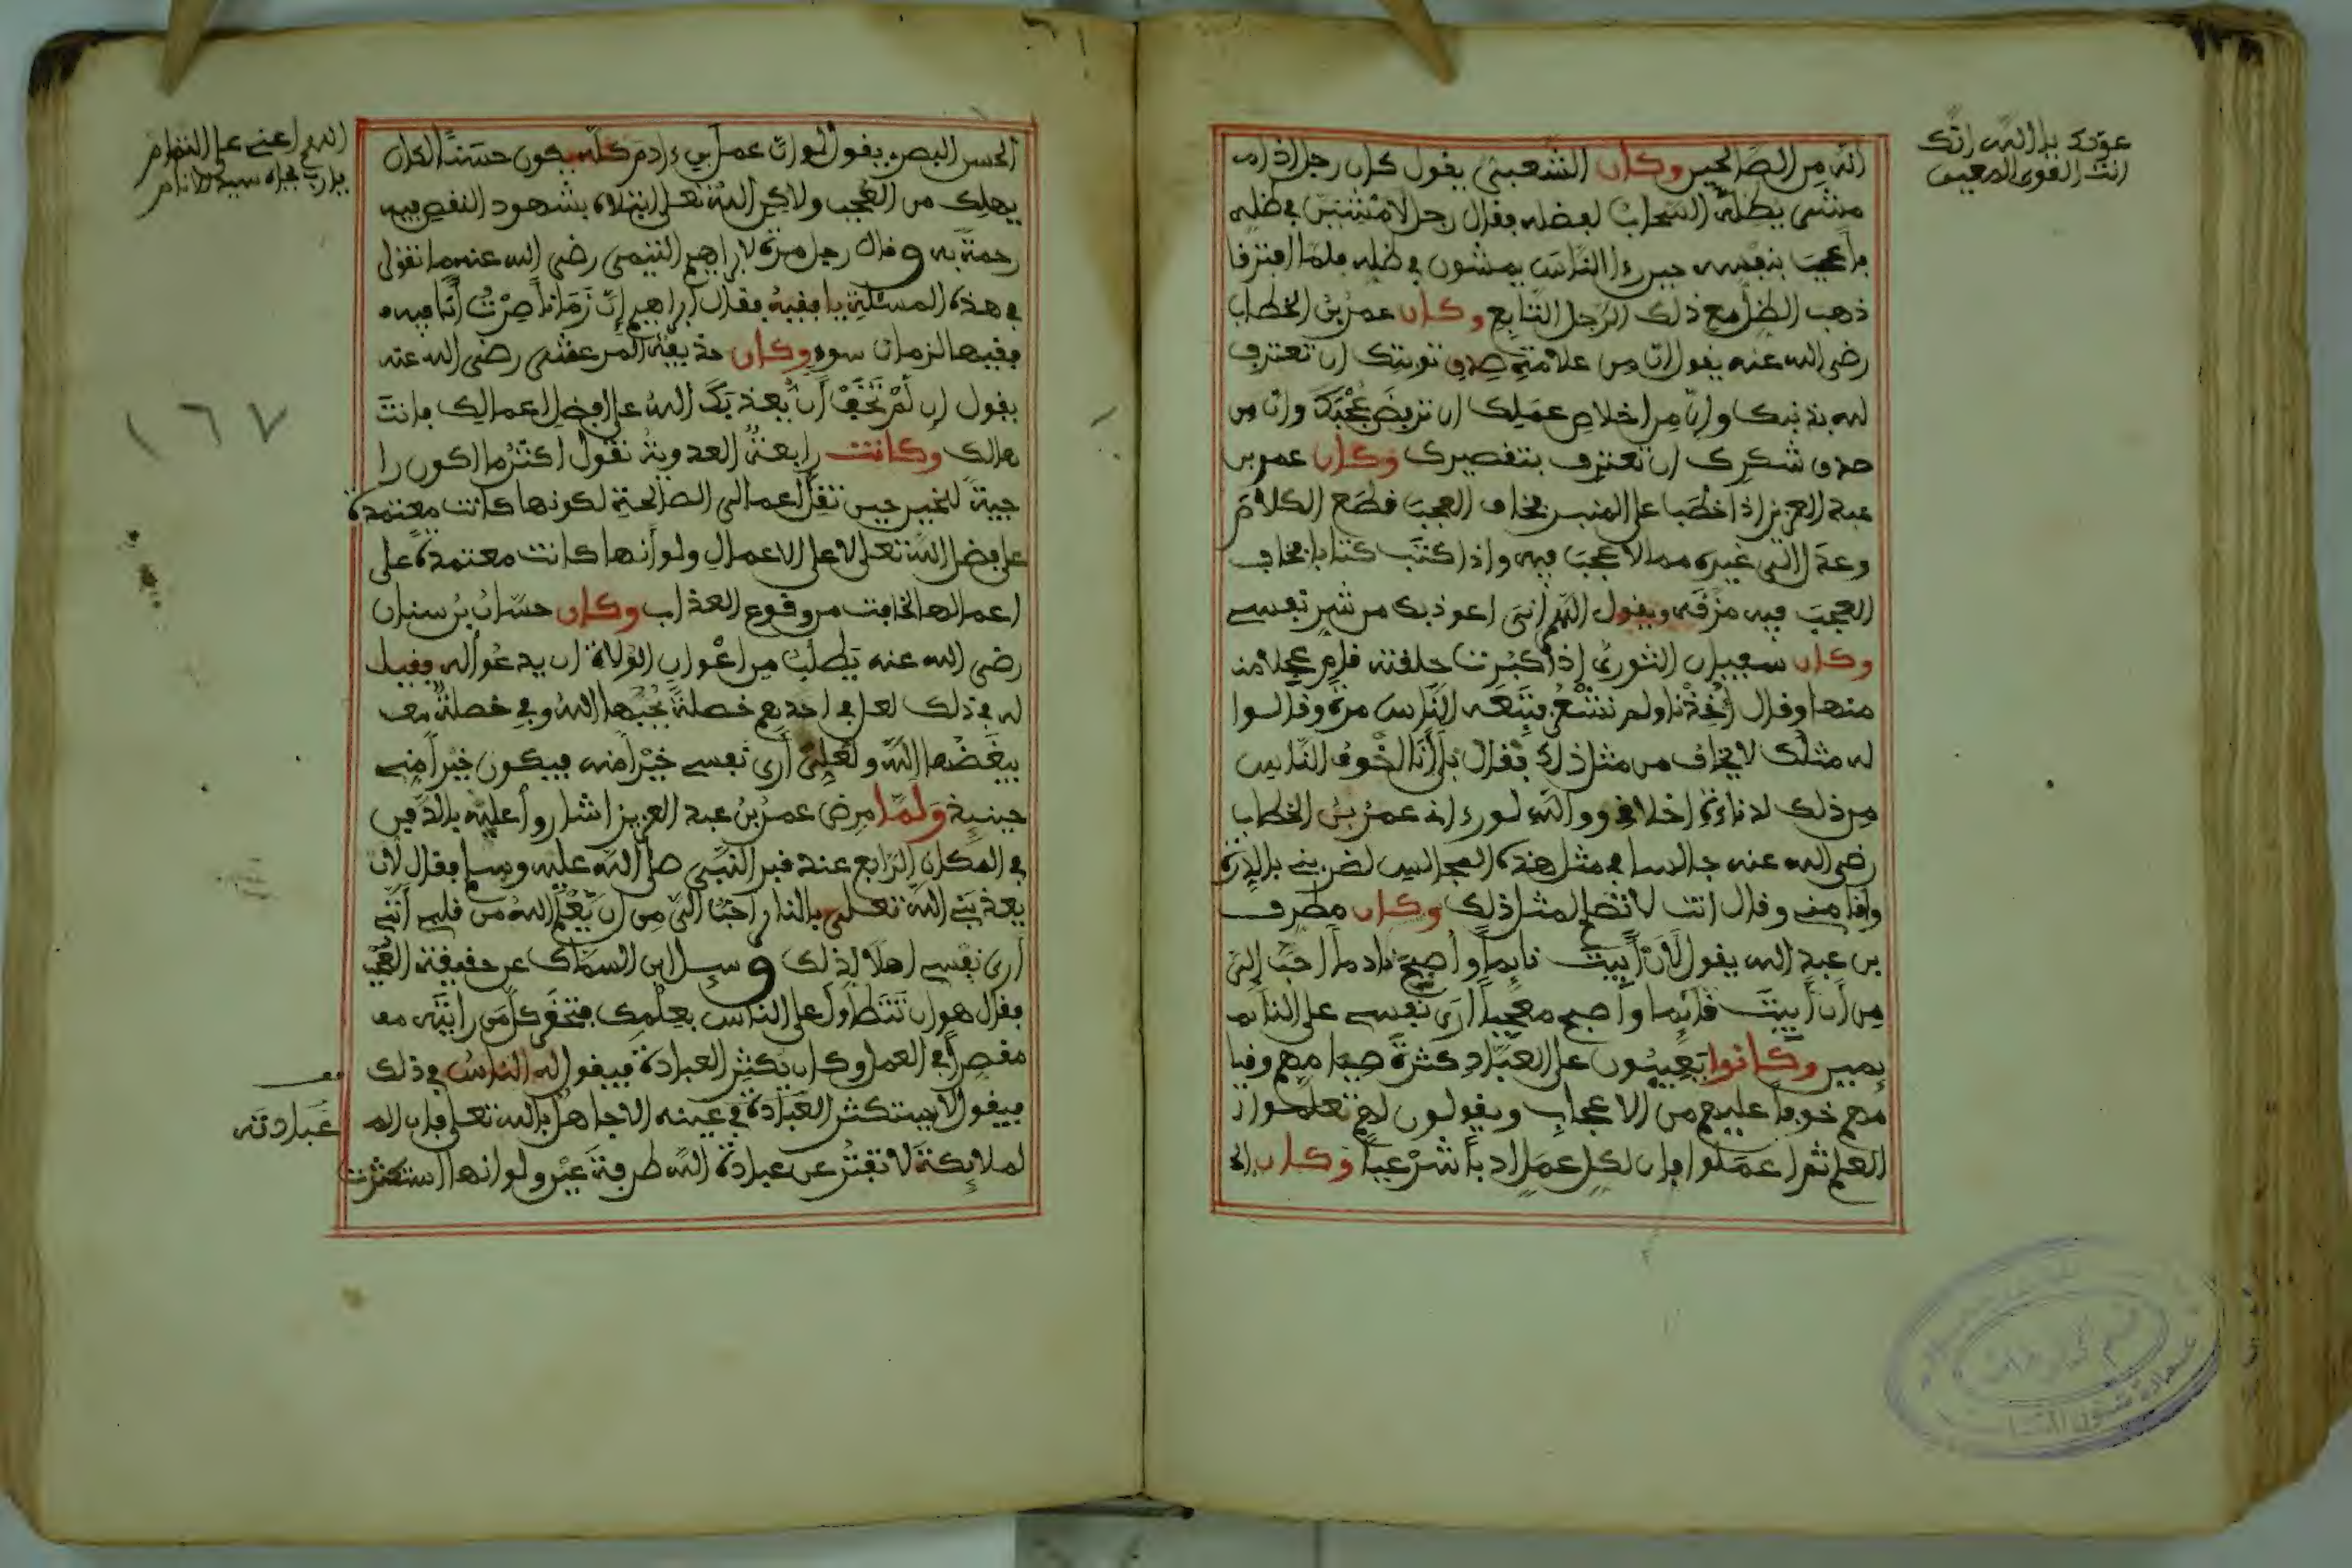 عونك يا الله إنك
أنت القوي المعين
أنه من الصالحين وكان الشعبي يقول كان رجل إذا
مشى يظله السحاب لفضله فقال رجل لأمشين في ظله
فأعجب بنفسه حين رءا الناس يمشون في ظله فلما افترقا
ذهب الظل مع ذلك الرجل التابع وكان عمر بن الخطاب
رضي الله عنه يقول إن من علامة صدق توبتك أن تعترف
لله بذنبك وإن من إخلاص عملك أن ترفض عجبك وإن من
صدق شكرك أن تعترف بتقصيرك وكان عمر بن
عبد العزيز إذا خطب على المنبر فخاف العجب قطع الكلام
وعدل إلى غيره مما لا عجب فيه وإذا كتب كتابا فخاف
العجب فيه مزقه ويقول اللهم إني أعوذ بك من شر نفسي
وكان سفيان الثوري إذا كبرت حلقته قام عجلا منه
منها وقال أخذنا ولم نشعر فتبعه الناس مرة وقالوا
له مثلك لا يخاف من مثل ذلك فقال بل أنا أخوف الناس
من ذلك لدناءة أخلاقي ووالله لو رءاني عمر بن الخطاب
رضي الله عنه جالسا في مثل هذه المجالس لضربني بالدرة
وأقامني وقال أنت لا تصلح لمثل ذلك وكان مطرف
بن عبد الله يقول لأن أبيت نايما وأصبح نادما أحب إلي
من أن أبيت قائما وأصبح معجبا أرى نفسي على النائم
يمين وكانوا يعيبون على العباد كثرة صيامهم وقيا
مهم خوفا عليهم من الإعجاب ويقولون لهم تعلموا
العلم ثم اعملوا فإن لكل عمل ادبا شرعيا وكان
الحسن البصري يقول لو أن عمل ابن ءادم كله يكون حسنا لكان
يهلك من العجب ولاكن الله تعلى ابتلاه بشهود النقص فيه
رحمة به وقال رجل مرة لإبراهيم التيمي رضي الله عنه ما تقول
في هذه المسئلة يا فقيه فقال إبراهيم إن زمانا صرت أنا فيه
فقيها لزمان سوء وكان حذيفة المرعشي رضي الله عنه
يقول إن لم تخف أن يعذبك الله على أفضل أعمالك فأنت
هالك وكانت رابعة العدوية تقول أكثر ما أكون را
جية للخير حين تقل أعمالي الصالحة لكونها كانت معتمدة
على فضل الله تعلى لا على الأعمال ولو أنها كانت معتمدة على
أعمالها لخافت من وقوع العذاب وكان حسان بن سنان
رضي الله عنه يطلب من أعوان الولاة أن يدعوا له فقيل
له في ذلك لعل في أحدهم خصلة يحبها الله وفي خصلة
يبغضها الله ولعلي أرى نفسي خيرا منه فيكون خيرا مني
حينئذ ولما مرض عمر بن عبد العزيز أشاروا عليه بالدفن
في المكان الرابع عند قبر النبي صلى الله عليه وسلم فقال لأن
يعذبني الله تعلى بالنار أحب إلي من أن يعلم الله من قلبي أنني
أرى نفسي أهلا لذلك وسئل ابن السماك عن حقيقة العجب
فقال هو أن تتطاول على الناس بعلمك فتحقر كل من رأيته
مقصرا في العمل وكان يكثر العبادة فيقول له الناس في ذلك
فيقول لا يستكثر العبادة في عينه إلا جاهل بالله تعلى فإن ال
لملائكة لا تفتر عن عبادة الله طرفة عين ولو أنها استكثرت
اللهم أعني على التمام
يا رب بجاه سيد الأنام
١٦٧
عبادته